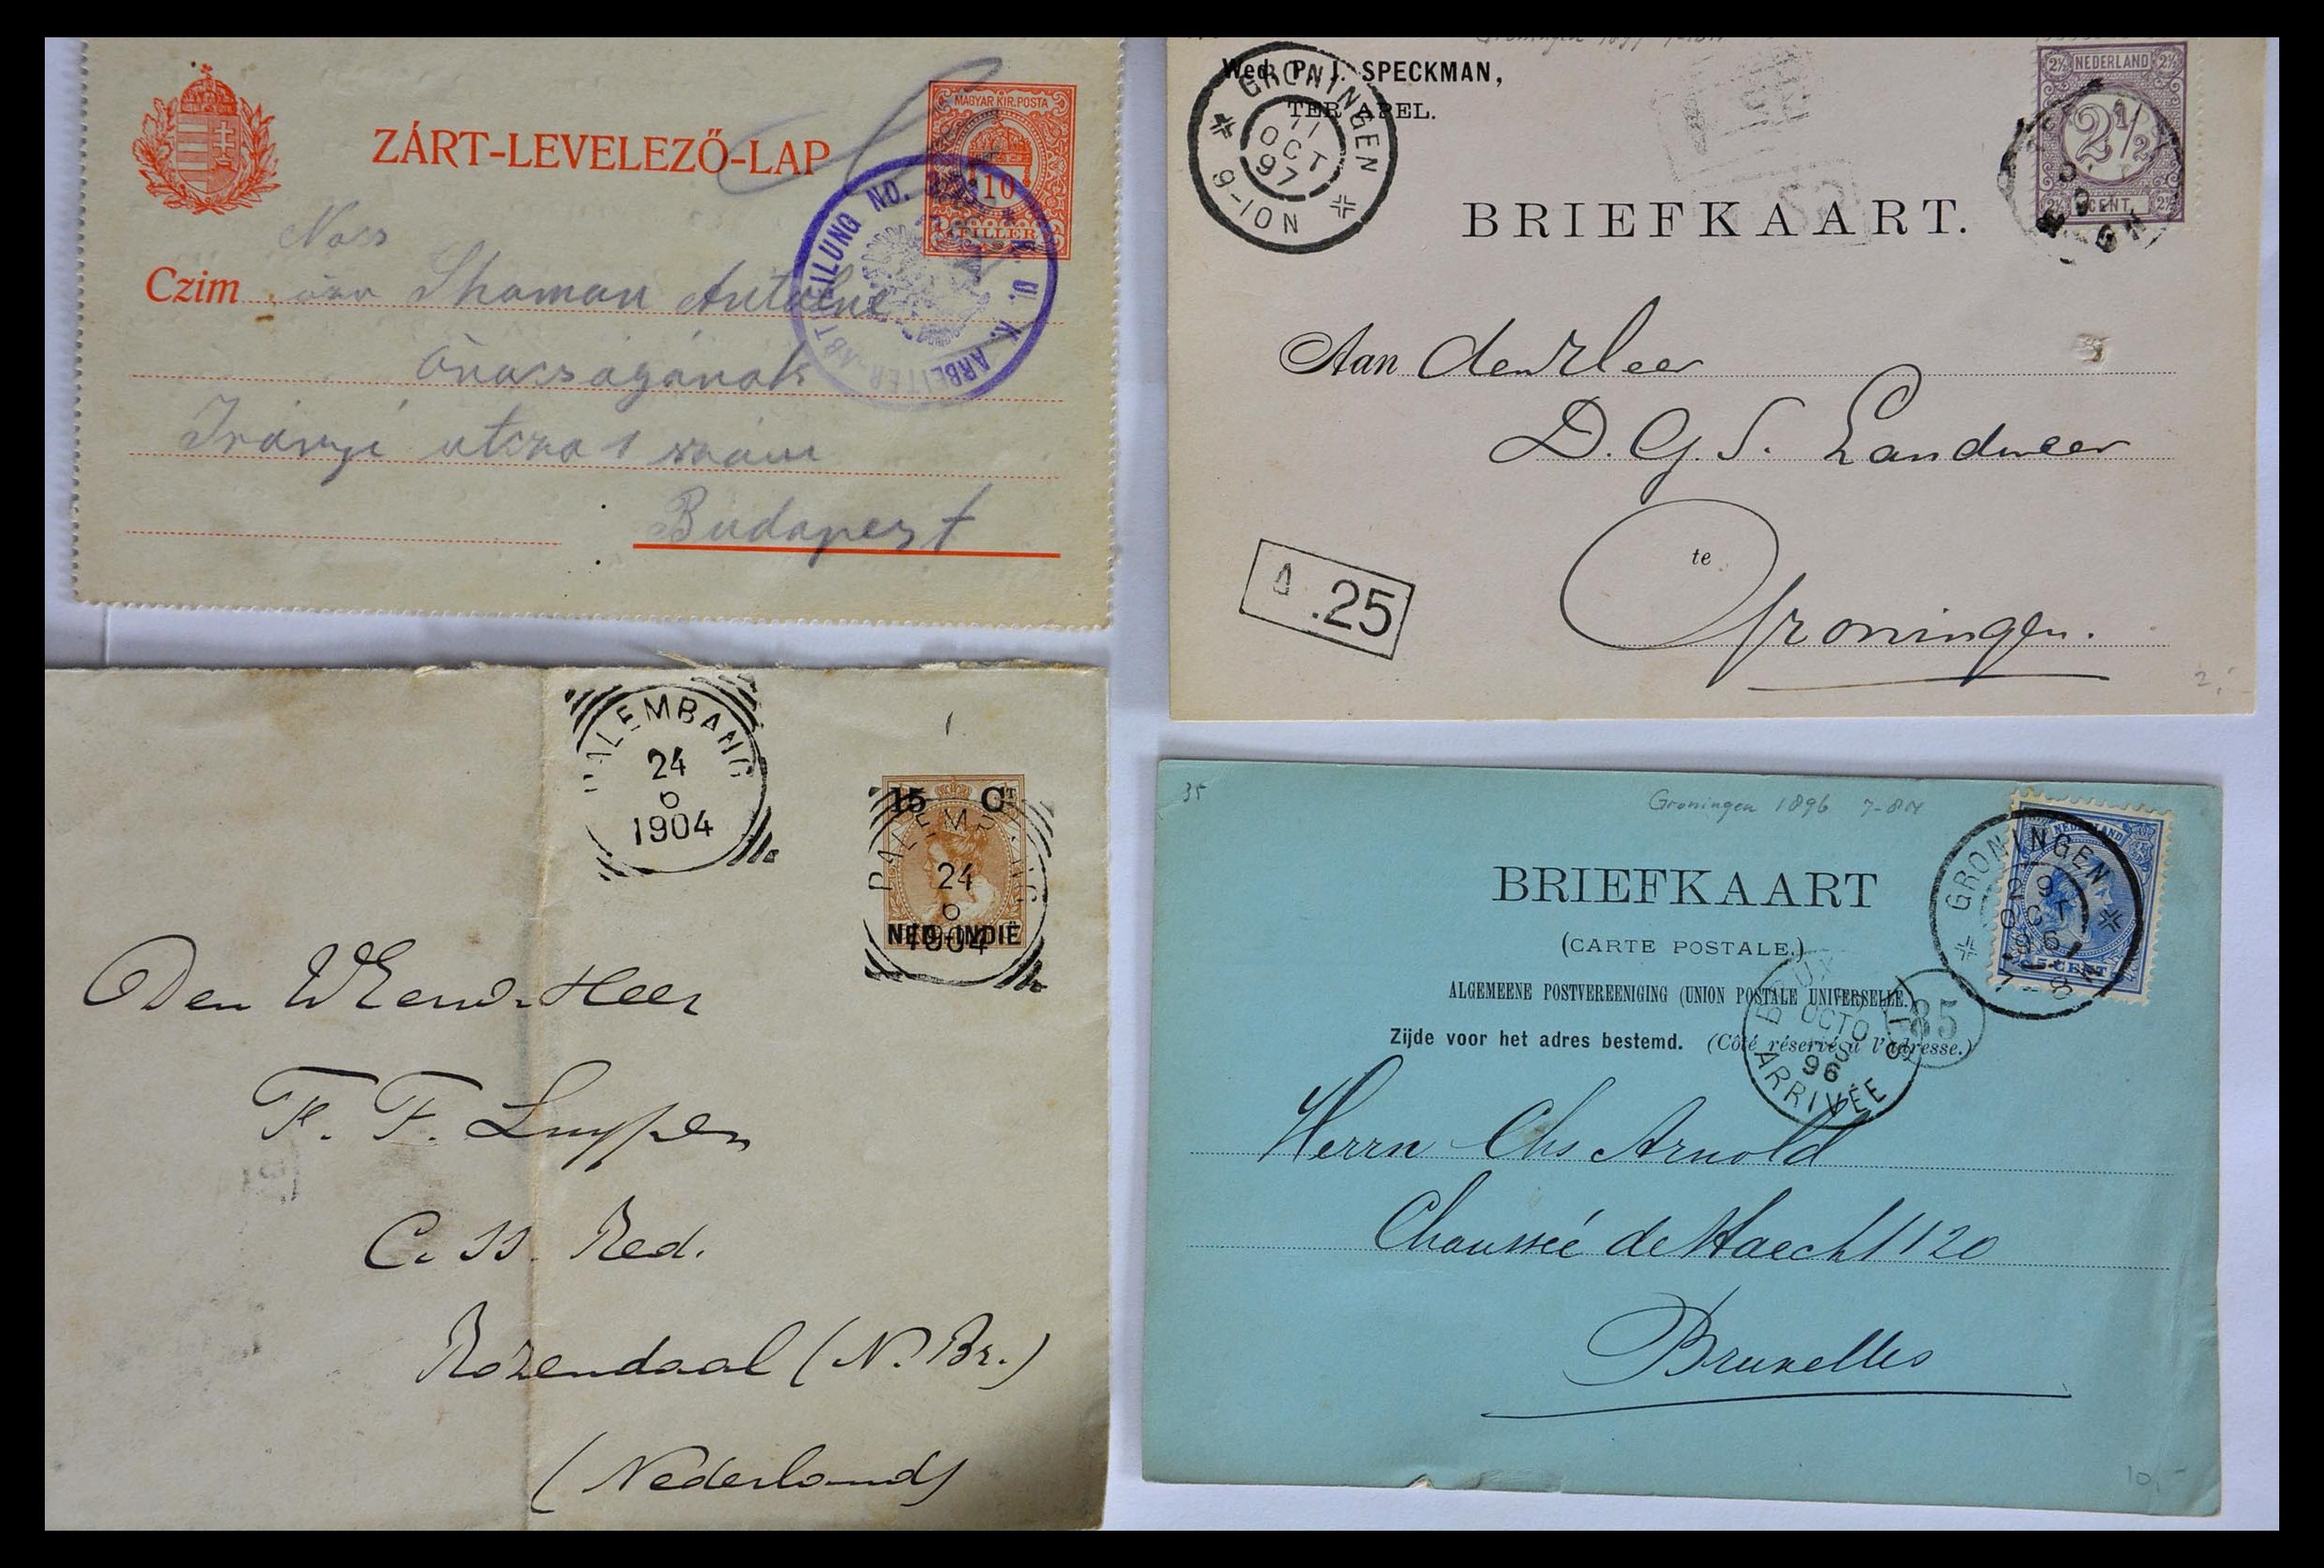 ZÁRT-LEVELEZŐ-LAP
MAGYAR KIR. POSTA
10
FILLER
K. U. K. ARBEITER-ABTEILUNG NO.
Czim Shaman Antalné
Őnagyságának
Irányi utcza 1 szám
Budapest
Wed. P. J. SPECKMAN,
TER APEL.
GRONINGEN
11
OCT
97
9-10N
NEDERLAND
2½
CENT.
BRIEFKAART.
Aan den Heer
D. G. S. Landweer
te
Groningen.
A .25
2,-
PALEMBANG
24
6
1904
15 CT
NED.-INDIË
PALEMBANG
24
6
1904
Den WEerw. Heer
F. F. Luypen
C. ss. Red.
Rozendaal (N. Br.)
(Nederland)
35
Groningen 1896 7-8N
BRIEFKAART
(CARTE POSTALE.)
ALGEMEENE POSTVEREENIGING (UNION POSTALE UNIVERSELLE.)
Zijde voor het adres bestemd. (Côté réservé à l'adresse.)
NEDERLAND
5 CENT
GRONINGEN
29
OCT
96
7-8N
OCTO
96
ARRIVÉE
35
Herrn Chs Arnold
Chaussée de Haecht 120
Bruxelles
10,-